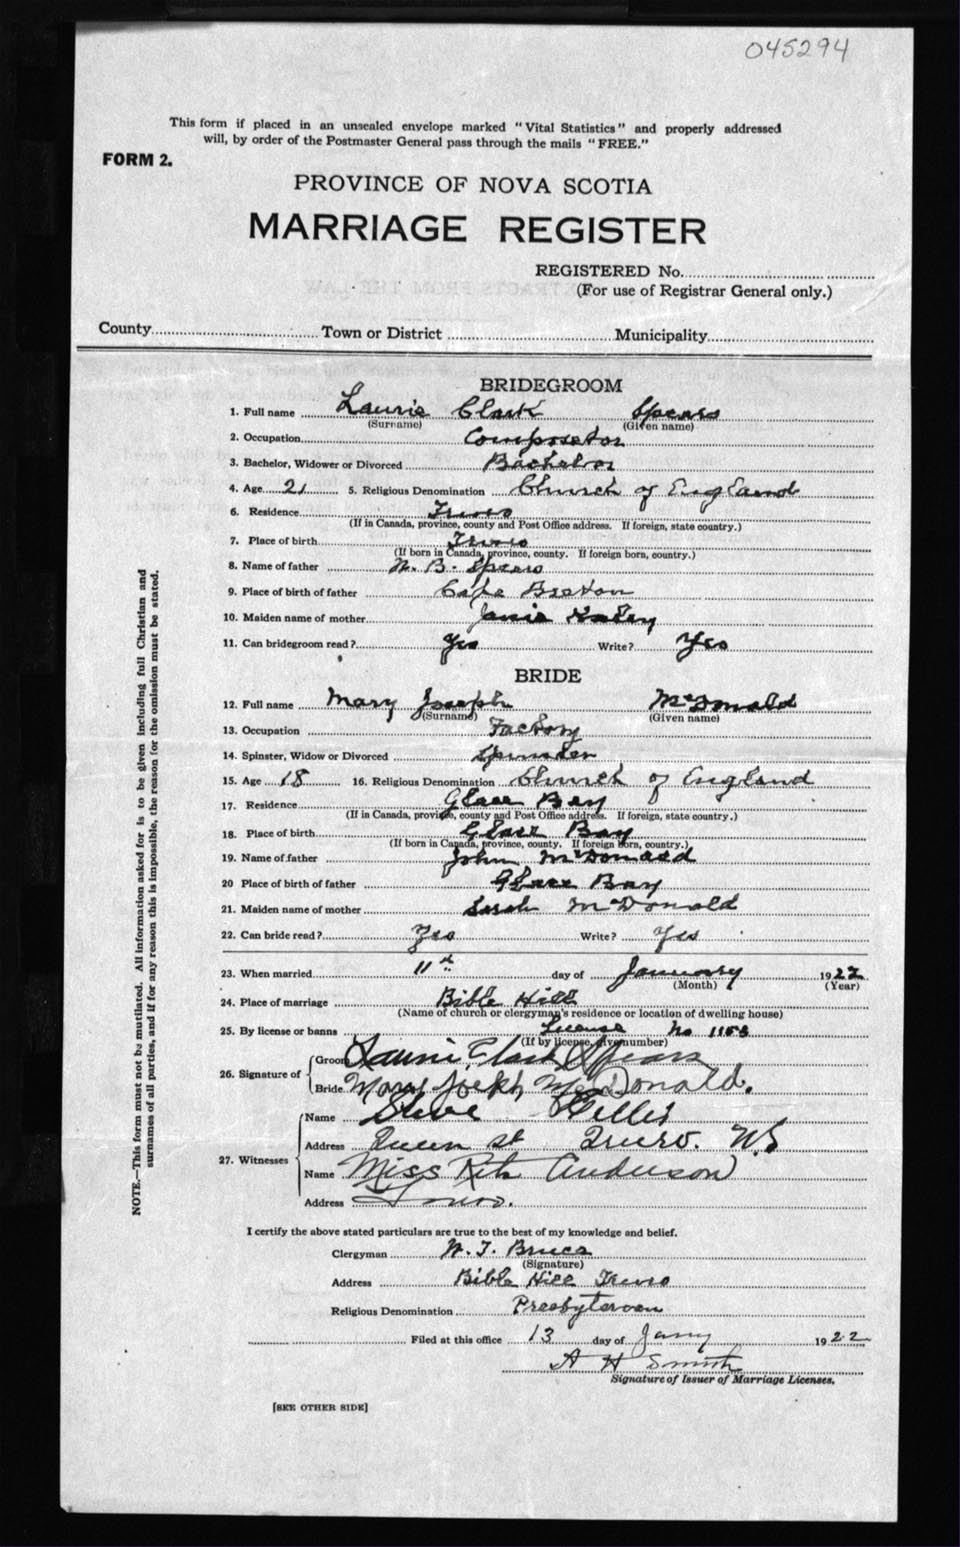 045294
This form if placed in an unsealed envelope marked "Vital Statistics" and properly addressed
will, by order of the Postmaster General pass through the mails "FREE."
FORM 2.
PROVINCE OF NOVA SCOTIA
MARRIAGE REGISTER
REGISTERED No.
(For use of Registrar General only.)
County Town or District Municipality
BRIDEGROOM
1. Full name Laurie Clark Spears
(Surname) (Given name)
2. Occupation Compositor
3. Bachelor, Widower or Divorced Bachelor
4. Age 21 5. Religious Denomination Church of England
6. Residence Truro
(If in Canada, province, county and Post Office address. If foreign, state country.)
7. Place of birth Truro
(If born in Canada, province, county. If foreign born, country.)
8. Name of father B. Spears
9. Place of birth of father Cape Breton
10. Maiden name of mother Janie
11. Can bridegroom read? Yes Write? Yes
BRIDE
12. Full name Mary Joseph McDonald
(Surname) (Given name)
13. Occupation Factory
14. Spinster, Widow or Divorced Spinster
15. Age 18 16. Religious Denomination Church of England
17. Residence Glace Bay
(If in Canada, province, county and Post Office address. If foreign, state country.)
18. Place of birth Glace Bay
(If born in Canada, province, county. If foreign born, country.)
19. Name of father John McDonald
20 Place of birth of father Glace Bay
21. Maiden name of mother Sarah McDonald
22. Can bride read? Yes Write? Yes
23. When married 11th day of January 1922
(Month) (Year)
24. Place of marriage Bible Hill
(Name of church or clergyman's residence or location of dwelling house)
25. By license or banns License No 1158
(If by license, give number)
26. Signature of Groom Laurie Clark Spears
Bride Mary Joseph McDonald.
27. Witnesses
Name Steve Hillis
Address Queen st Truro. NS
Name Miss Rita Anderson
Address Truro.
I certify the above stated particulars are true to the best of my knowledge and belief.
Clergyman W. T. Bruce
(Signature)
Address Bible Hill Truro
Religious Denomination Presbyterian
Filed at this office 13 day of Jany 1922
A H Smith
Signature of Issuer of Marriage Licenses.
[SEE OTHER SIDE]
NOTE.—This form must not be mutilated. All information asked for is to be given including full Christian and
surnames of all parties, and if for any reason this is impossible, the reason for the omission must be stated.